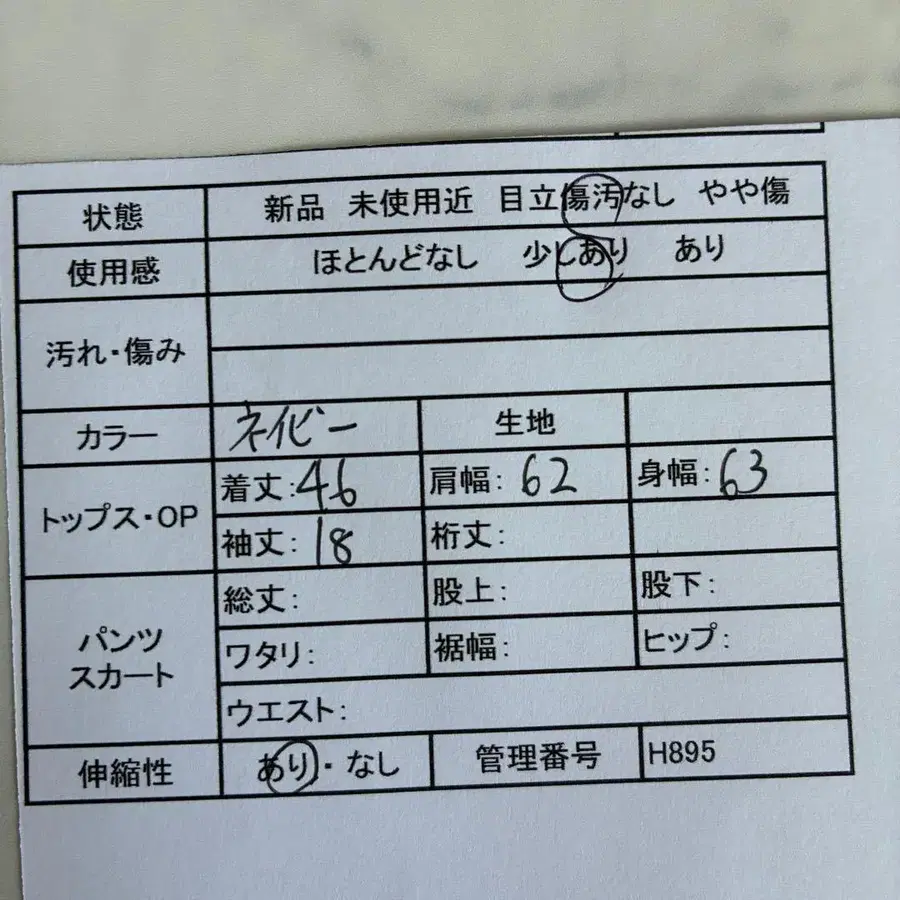 状態 新品 未使用近 目立傷汚なし やや傷
使用感 ほとんどなし 少しあり あり
汚れ・傷み
カラー ネイビー 生地
トップス・OP 着丈:46 肩幅:62 身幅:63
袖丈:18 裄丈:
パンツ スカート 総丈: 股上: 股下:
ワタリ: 裾幅: ヒップ:
ウエスト:
伸縮性 あり・なし 管理番号 H895